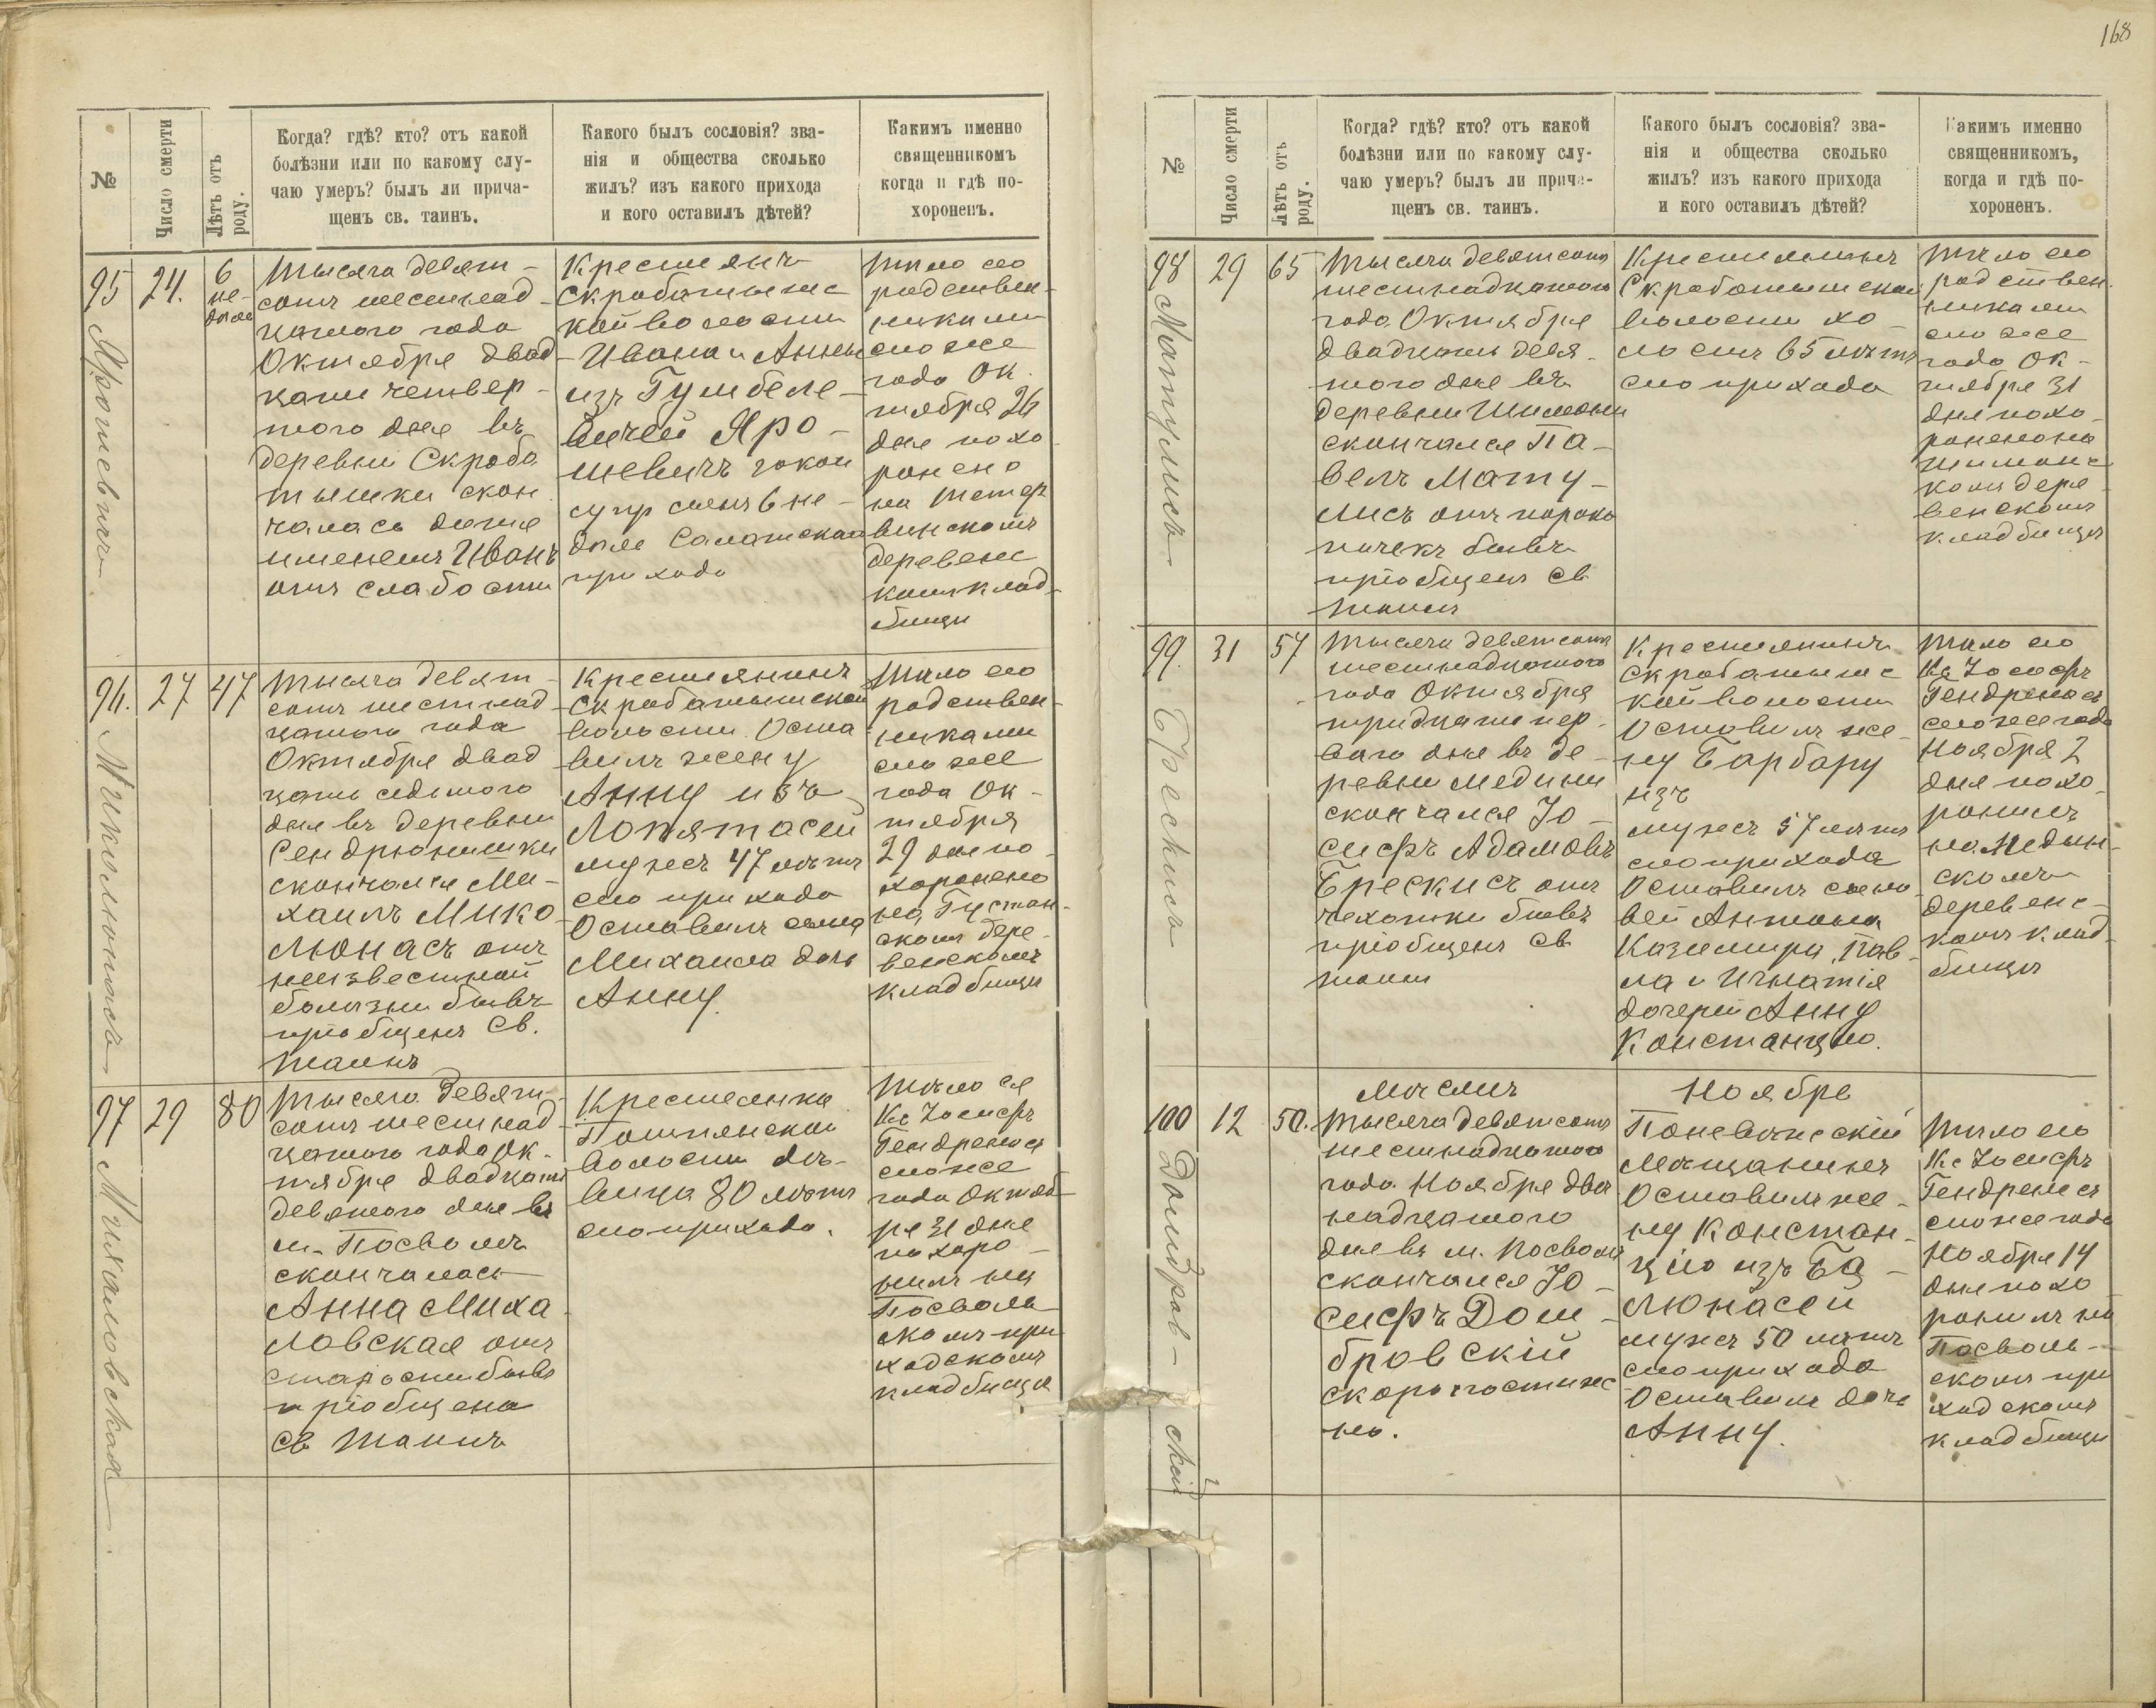 168
№
Число смерти
Лѣтъ отъ
роду.
Когда? гдѣ? кто? отъ какой
болѣзни или по какому слу-
чаю умеръ? былъ ли прича-
щенъ св. таинъ.
Какого былъ сословія? зва-
нія и общества сколько
жилъ? изъ какого прихода
и кого оставилъ дѣтей?
Какимъ именно
священникомъ
когда и гдѣ по-
хороненъ.
95
Ярошевичъ
24.
6
не-
дѣли
Тысяча девят-
сотъ шестнад-
цатого года
Октября двад-
цати четвер-
того дня въ
деревни Скроба
тышки скон
чалась дитя
именемъ Иванъ
отъ слабости
Крестьянъ
Скробатышс
кой волости
Ивана и Анны
изъ Гумбеле-
вичей Яро-
шевичъ закон
супр сынъ 6 не-
дѣли Салатской
прихода
Тѣло его
родствен-
никами
сего же
года Ок-
тября 26
дня похо
ронено
на Тетер
винскомъ
деревенс
комъ клад-
бищи
96.
Миколюнасъ
27
47
Тысяча девят-
сотъ шестнад-
цатого года
Октября двад
цать седьмого
дня въ деревни
Сендрюнишки
скончался Ми-
хаилъ Мико-
люнасъ отъ
неизвестной
болѣзни бывъ
пріобщенъ Св.
Таинъ
Крестьянинъ
Скробатышской
волости. Оста
вилъ жену
Анну изъ
Лопятасей
мужъ 47 лѣтъ
сего прихода
Оставилъ сына
Михаила дочь
Анну.
Тѣло его
родствен-
никами
сего же
года Ок-
тября
29 дня по-
хоронено
на Густон-
скомъ дере-
венскомъ
кладбищи
97
Михаловская
29
80
Тысяча девять-
сотъ шестнад-
цатого года Ок-
тября двадцати
девятого дня въ
м. Посволѣ
скончалась
Анна Миха-
ловская отъ
старости бывъ
пріобщена
Св Таинъ
Крестьянка
Помпянской
волости дѣ-
вица 80 лѣтъ
сего прихода.
Тѣло ея
Кс Іосифъ
Гендренасъ
сего же
года Октяб-
ря 31 дня
похоро-
нилъ на
Посволь-
скомъ при
ходскомъ
кладбищи
№
Число смерти
Лѣтъ отъ
роду.
Когда? гдѣ? кто? отъ какой
болѣзни или по какому слу-
чаю умеръ? былъ ли прича-
щенъ св. таинъ.
Какого былъ сословія? зва-
нія и общества сколько
жилъ? изъ какого прихода
и кого оставилъ дѣтей?
Какимъ именно
священникомъ,
когда и гдѣ по-
хороненъ.
98
Матулисъ
29
65
Тысяча девятсотъ
шестнадцатого
года Октября
двадцать девя-
того дня въ
деревни Шимоны
скончался Па-
велъ Мату-
лисъ отъ порока
почекъ бывъ
пріобщенъ Св
Таинъ
Крестьянинъ
Скробатышской
волости хо-
лостъ 65 лѣтъ
сего прихода
Тѣло его
родствен
никами
сего же
года Ок-
тября 31
дня похо-
ронено на
Шимонс
комъ дере-
венскомъ
кладбищи
99.
Брескисъ
31
57
Тысяча девятсотъ
шестнадцатого
года Октября
тридцати пер-
вого дня въ де-
ревни Медини
скончался Іо-
сифъ Адамовъ
Брескисъ отъ
чехотки бывъ
пріобщенъ Св
таинъ
Крестьянинъ
Скробатышс
кой волости
Оставилъ же-
ну Барбару
изъ
мужъ 57 лѣтъ
сего прихода
Оставилъ сыно
вей Антона
Казимира, Пав-
ла и Игнатія
дочерей Анну
Констанцію.
Тѣло его
Кс Іосифъ
Гендренасъ
сего же года
Ноября 2
дня похо-
ронилъ
на Медин-
скомъ
деревенс-
комъ клад-
бищи
Мѣсяцъ Ноябрь
100
Домбров-скій
12
50.
Тысяча девятсотъ
шестнадцатого
года Ноября две
надцатого
дня въ м. Посволѣ
скончался Іо-
сифъ Дом-
бровскій
скоропостиж
но.
Поневѣжескій
мѣщанинъ
Оставилъ же-
ну Констан-
цію изъ Ба-
люнасей
мужъ 50 лѣтъ
сего прихода
Оставилъ дочь
Анну.
Тѣло его
Кс Іосифъ
Гендренасъ
сего же года
Ноября 14
дня похо
ронилъ на
Посволь-
скомъ при
ходскомъ
кладбищи